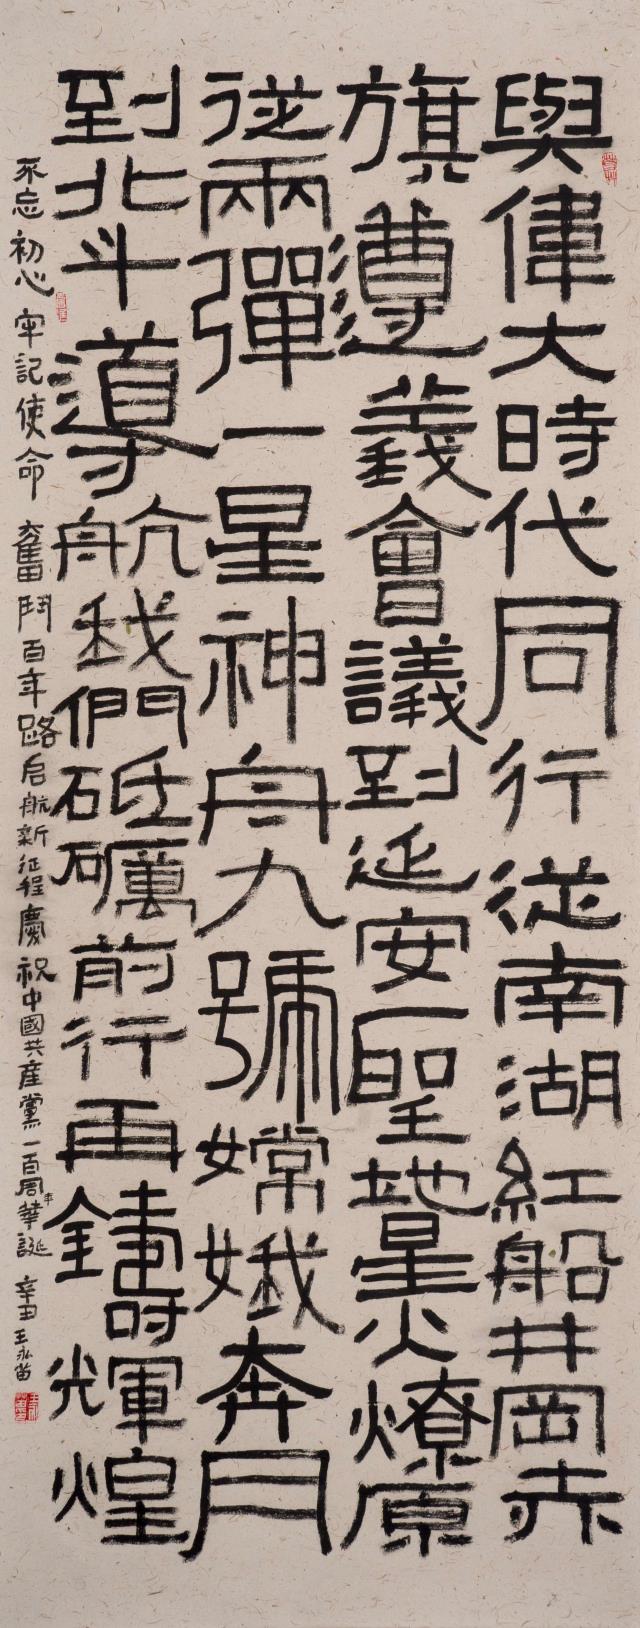 與偉大時代同行從南湖紅船井岡赤
旗遵義會議到延安聖地星火燎原
從兩彈一星神舟九號嫦娥奔月
到北斗導航我們砥礪前行再鑄輝煌
不忘初心牢記使命奮鬥百年路启航新征程慶祝中國共產黨一百周年華誕辛丑王永苗